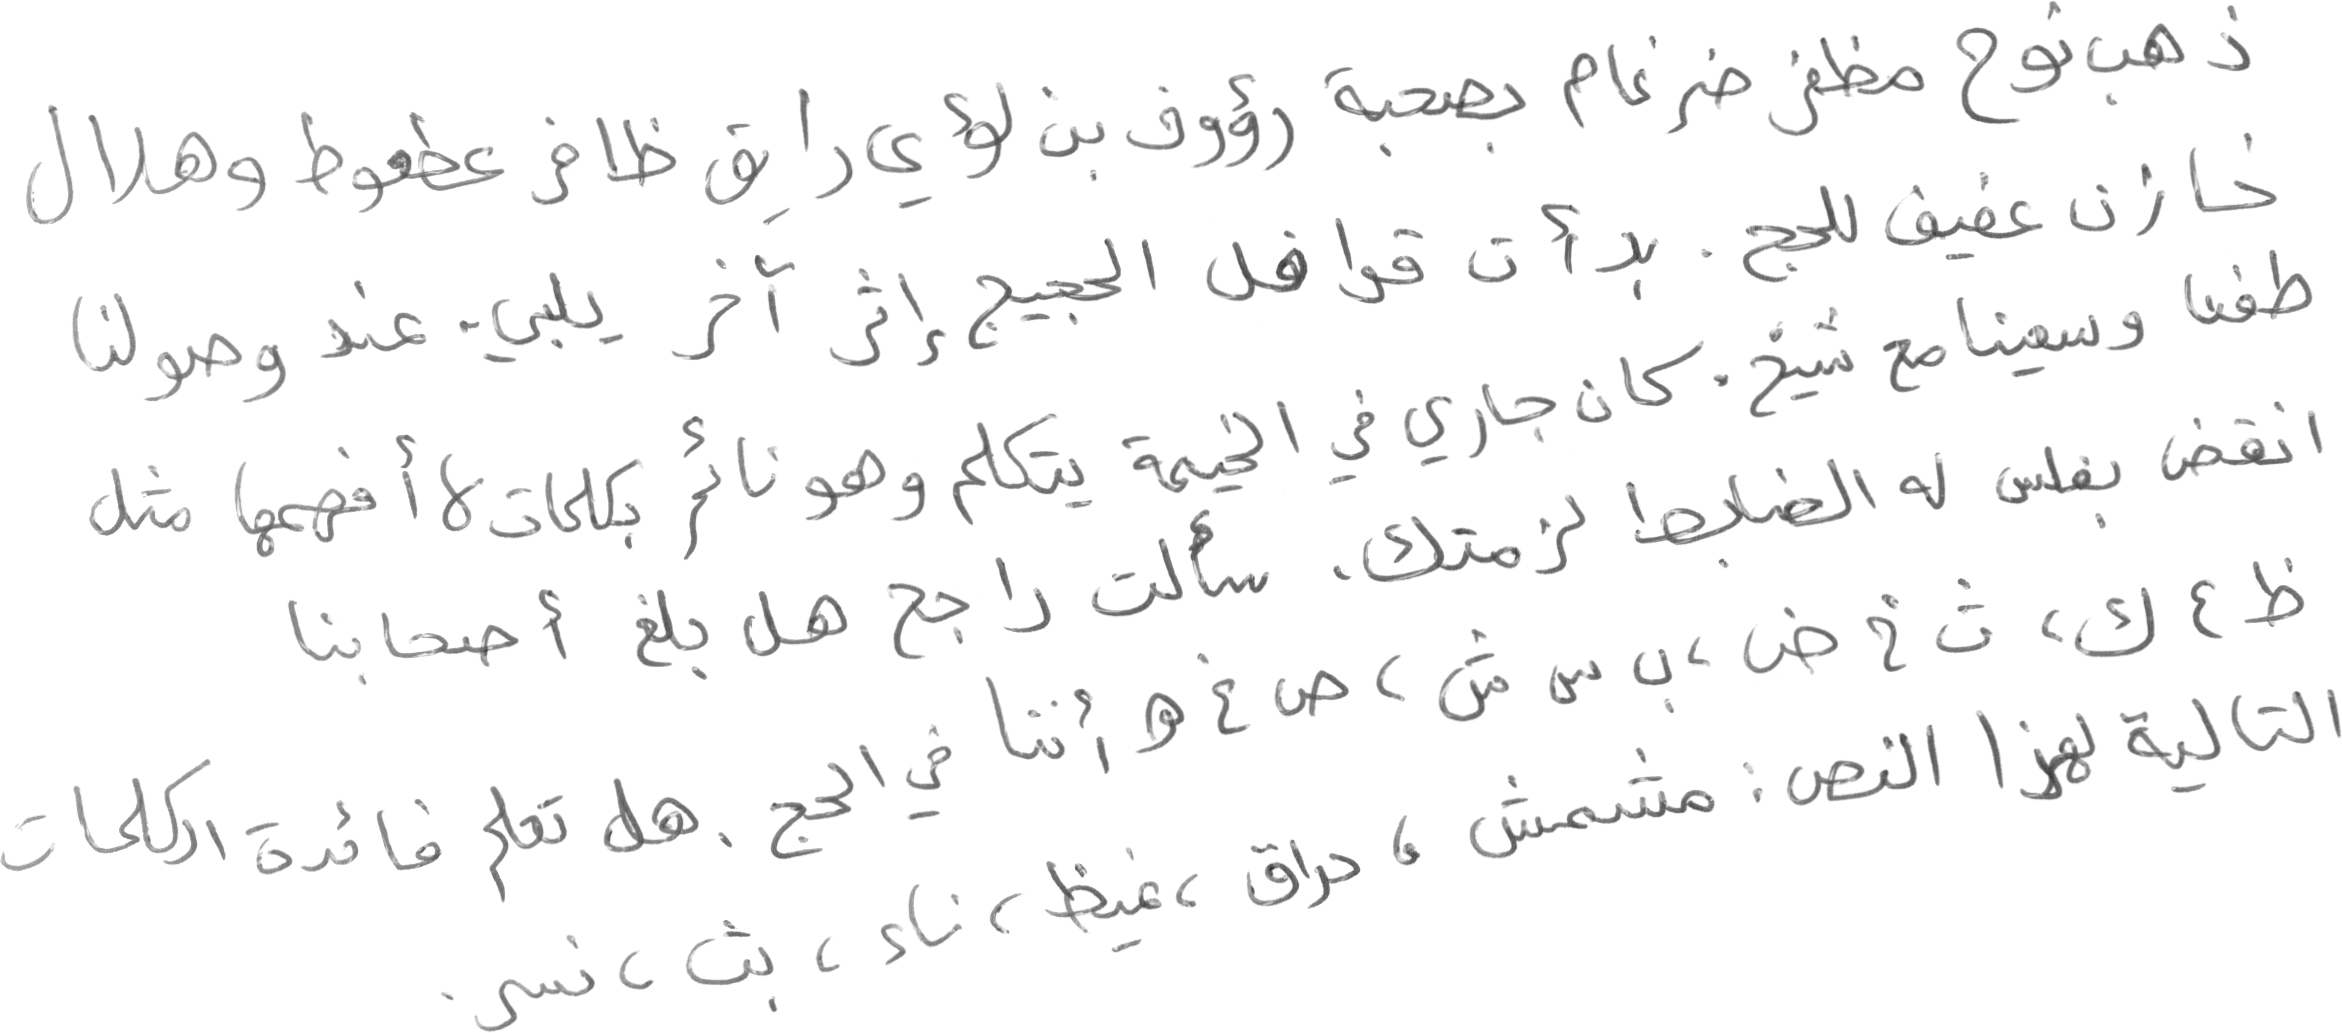 ذهب نوح مظفر ضرغام بصحبة رؤوف بن لؤي رايق ظافر عظعوط وهلال
خازن عفيف للحج. بدأت قوافل الحجيج إثر آخر يلبي. عند وصولنا
طفنا وسعينا مع شيخ. كان جاري في الخيمة يتكلم وهو نائم بكلمات لا أفهمها مثل
انقض بفلس له الضابط لزمتك. سألت راجح هل بلغ أصحابنا
ظ ع ك، ث خ ض، ب س ش، ص غ ه أننا في الحج. هل تعلم فائدة الكلمات
التالية لهذا النص: مشمش، دراق، غيظ، ناء، بث، نسر.